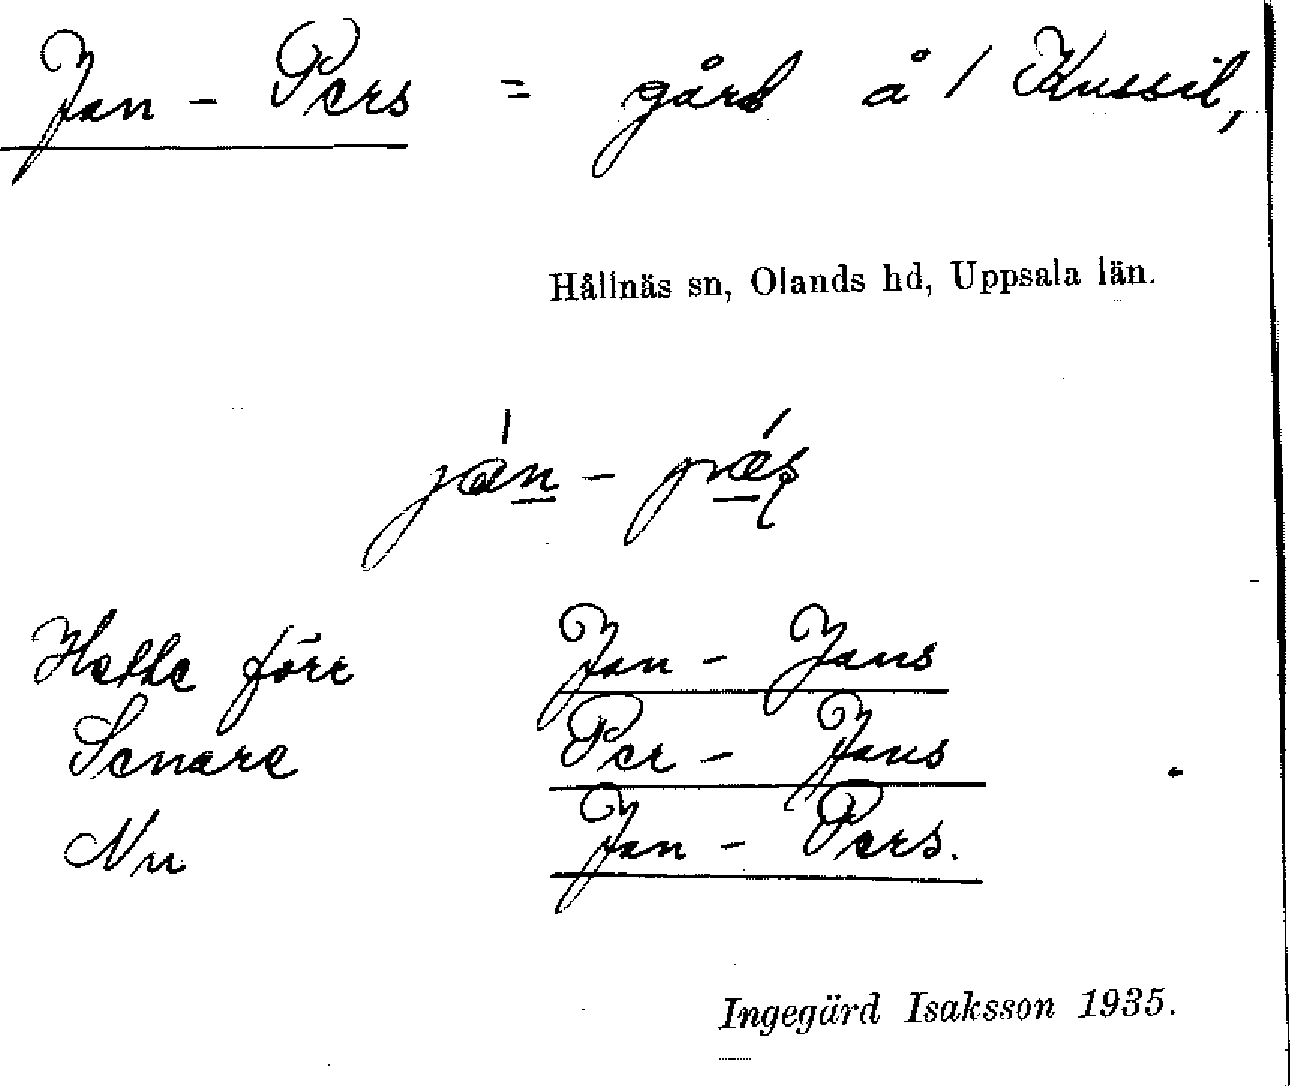 Jan - Pers = gård å 1 Kussil,
Hållnäs sn, Olands hd, Uppsala län.
Hette förr Jan - Jans
Senare Per - Jans
Nu Jan - Pers.
Ingegärd Isaksson 1935.